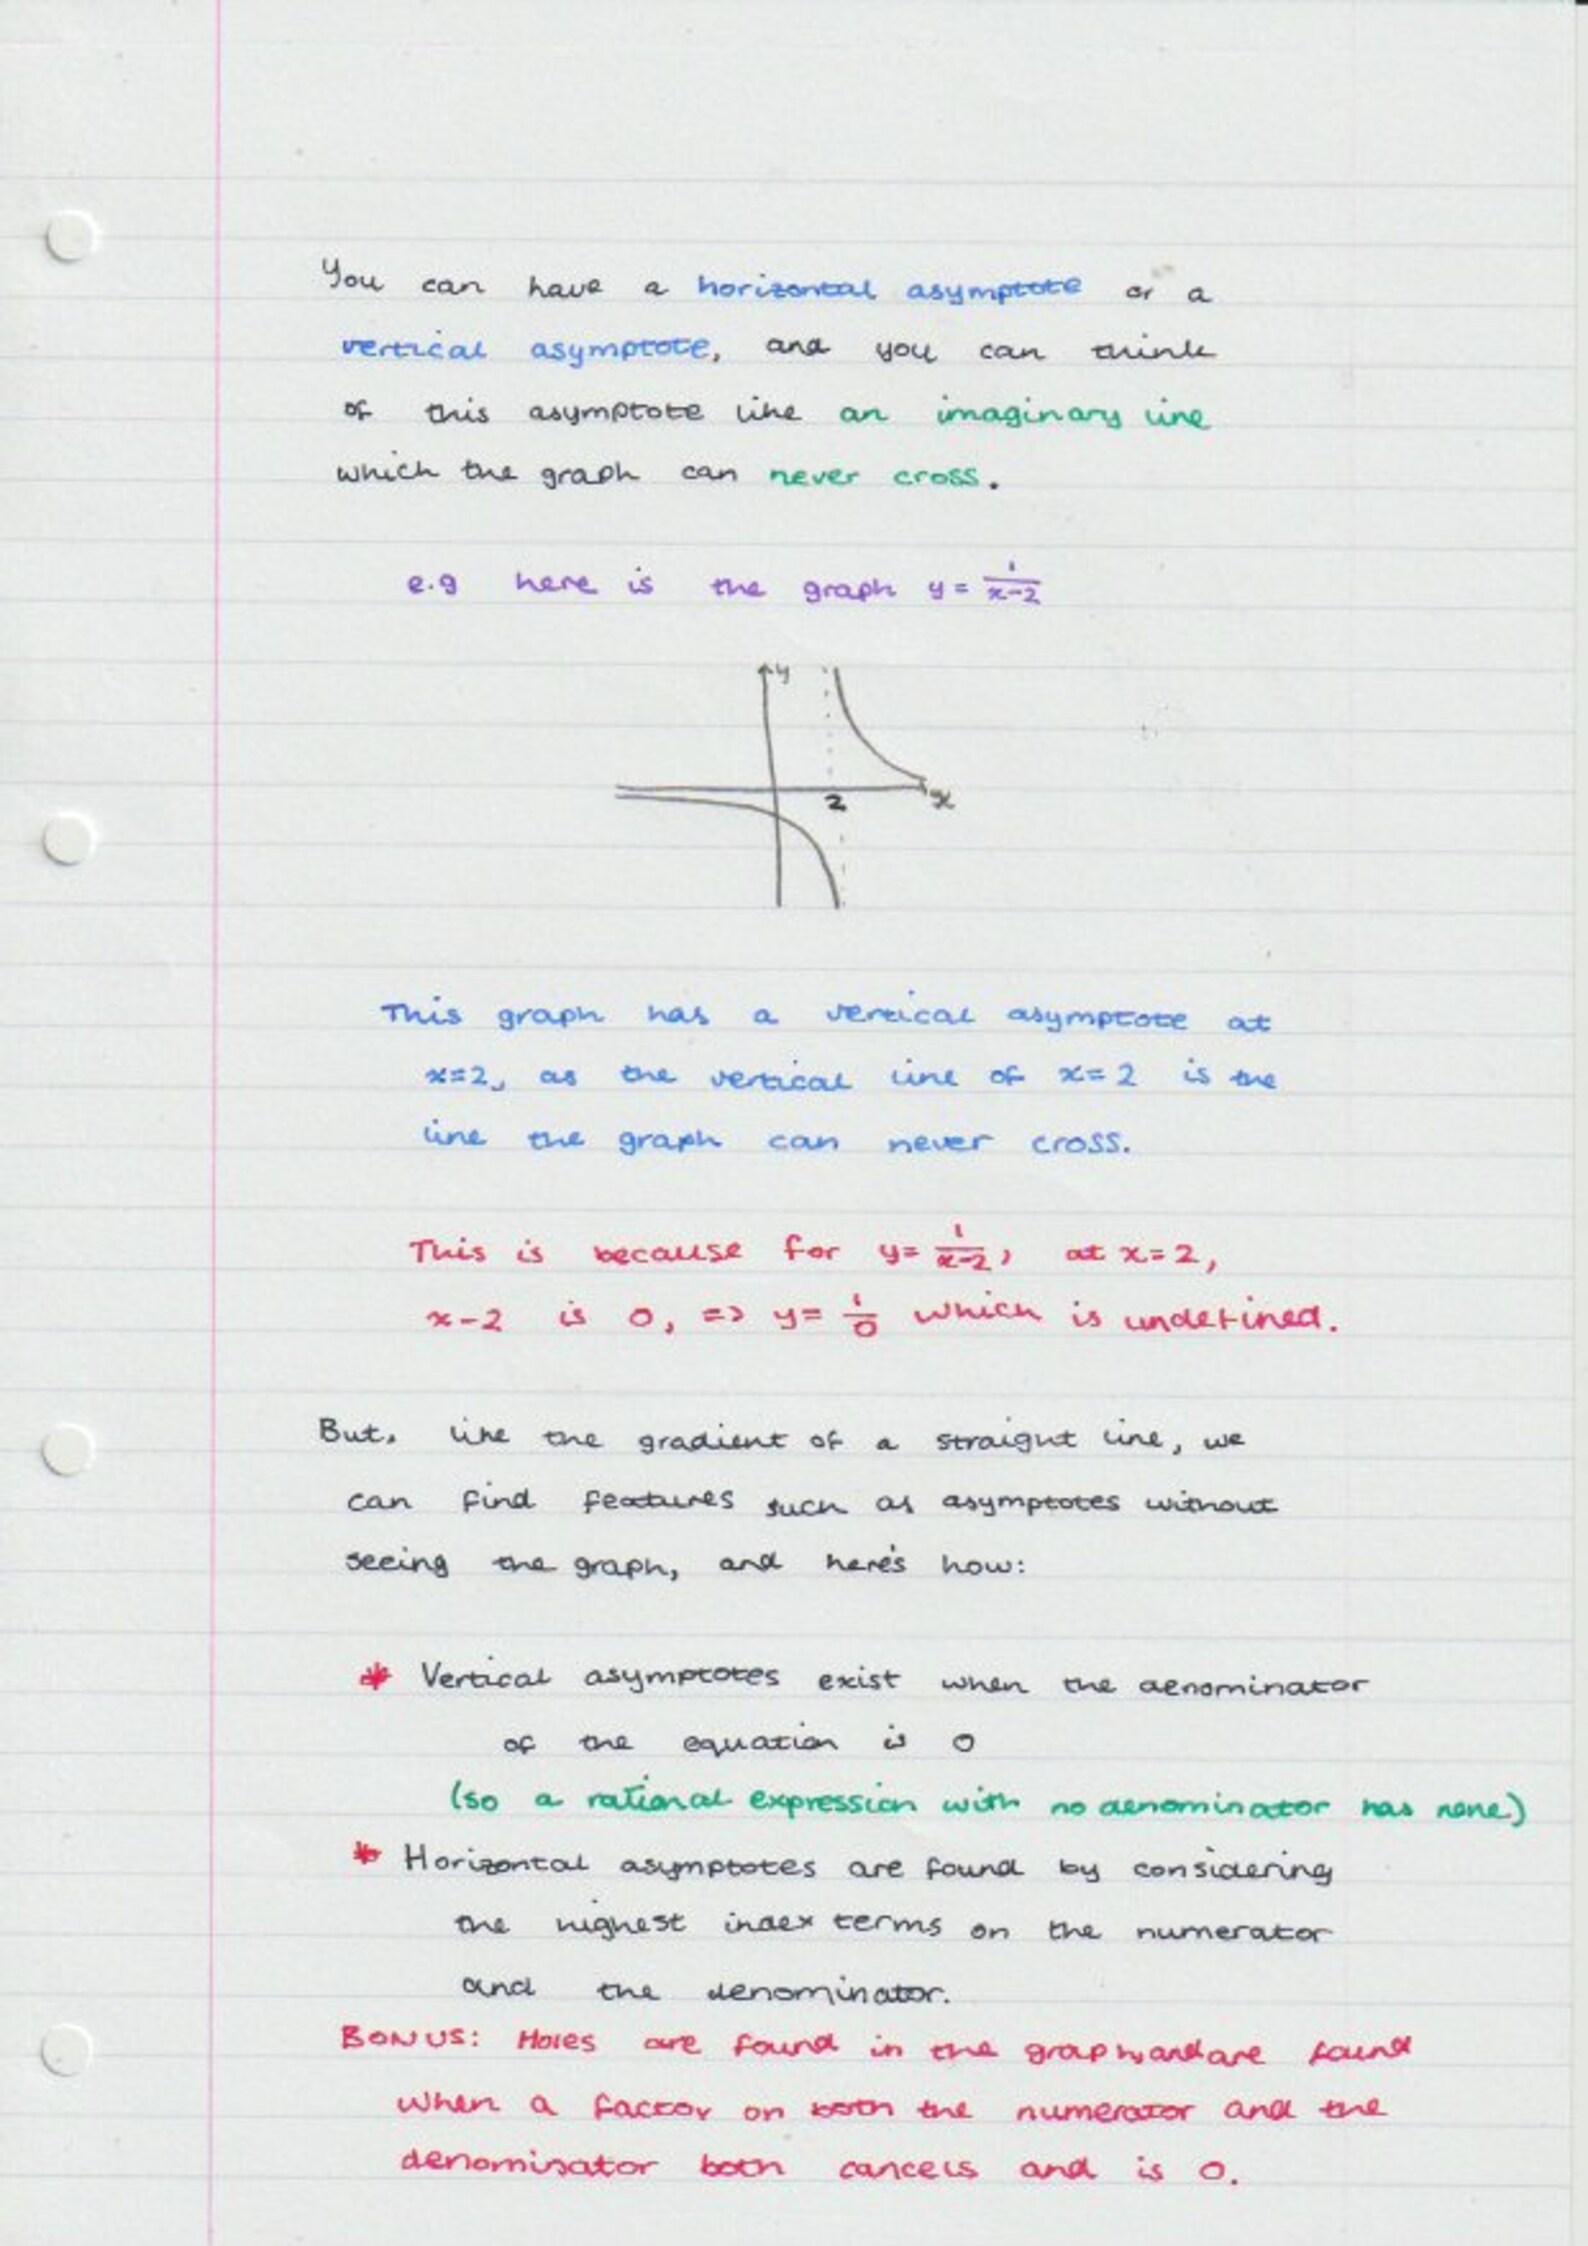 You can have a horizontal asymptote or a
vertical asymptote, and you can think
of this asymptote like an imaginary line
which the graph can never cross.
e.g here is the graph y = 1/(x-2)
y
2
x
This graph has a vertical asymptote at
x=2, as the vertical line of x=2 is the
line the graph can never cross.
This is because for y= 1/(x-2), at x=2,
x-2 is 0, => y= 1/0 which is undefined.
But, like the gradient of a straight line, we
can find features such as asymptotes without
seeing the graph, and here's how:
* Vertical asymptotes exist when the denominator
of the equation is 0
(so a rational expression with no denominator has none)
* Horizontal asymptotes are found by considering
the highest index terms on the numerator
and the denominator.
BONUS: Holes are found in the graph, and are found
when a factor on both the numerator and the
denominator both cancels and is 0.